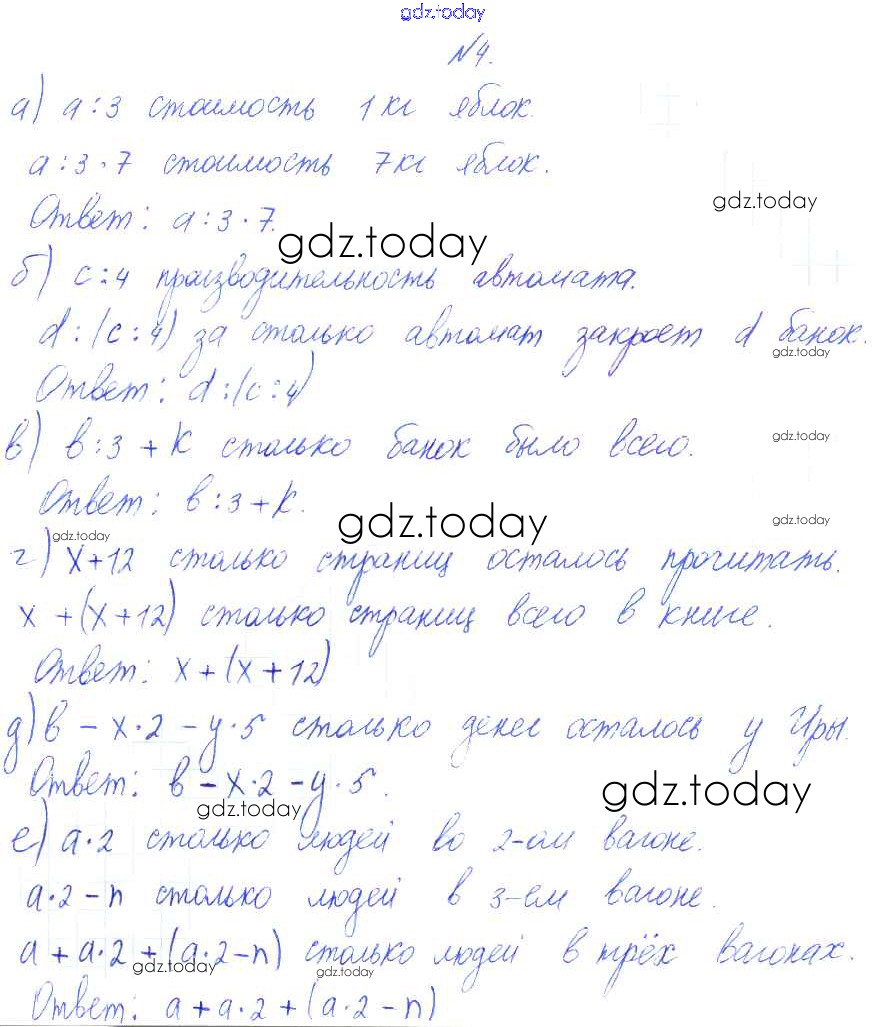 gdz.today
№4.
а) a : 3 стоимость 1 кг яблок.
a : 3 · 7 стоимость 7 кг яблок.
gdz.today
Ответ: a : 3 · 7.
gdz.today
б) c : 4 производительность автомата.
d : (c : 4) за столько автомат закроет d банок.
gdz.today
Ответ: d : (c : 4)
в) b : 3 + k столько банок было всего.
gdz.today
Ответ: b : 3 + k.
gdz.today
gdz.today
gdz.today
г) x + 12 столько страниц осталось прочитать.
x + (x + 12) столько страниц всего в книге.
Ответ: x + (x + 12)
д) b - x · 2 - y · 5 столько денег осталось у Иры.
Ответ: b - x · 2 - y · 5.
gdz.today
gdz.today
е) a · 2 столько людей во 2-ом вагоне.
a · 2 - n столько людей в 3-ем вагоне.
a + a · 2 + (a · 2 - n) столько людей в трёх вагонах.
gdz.today
gdz.today
Ответ: a + a · 2 + (a · 2 - n)